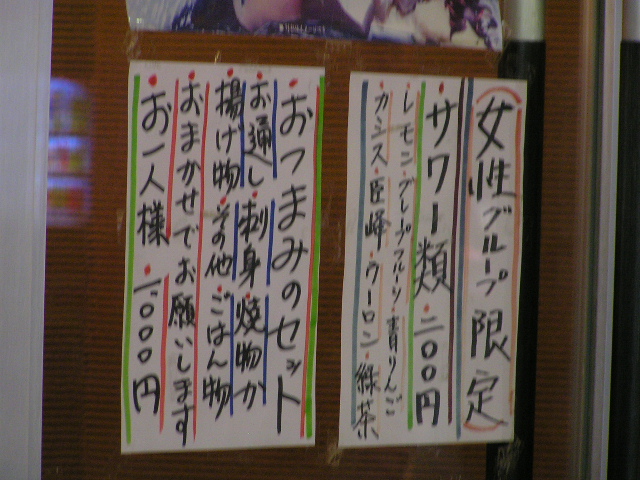 (女性グループ限定)
・サワー類・二〇〇円
・レモン・グレープフルーツ・青りんご
・カシス・巨峰・ウーロン・緑茶
・おつまみのセット
・お通し・刺身・焼物か
・揚げ物・その他・ごはん物
・おまかせでお願いします
・お一人様・一〇〇〇円